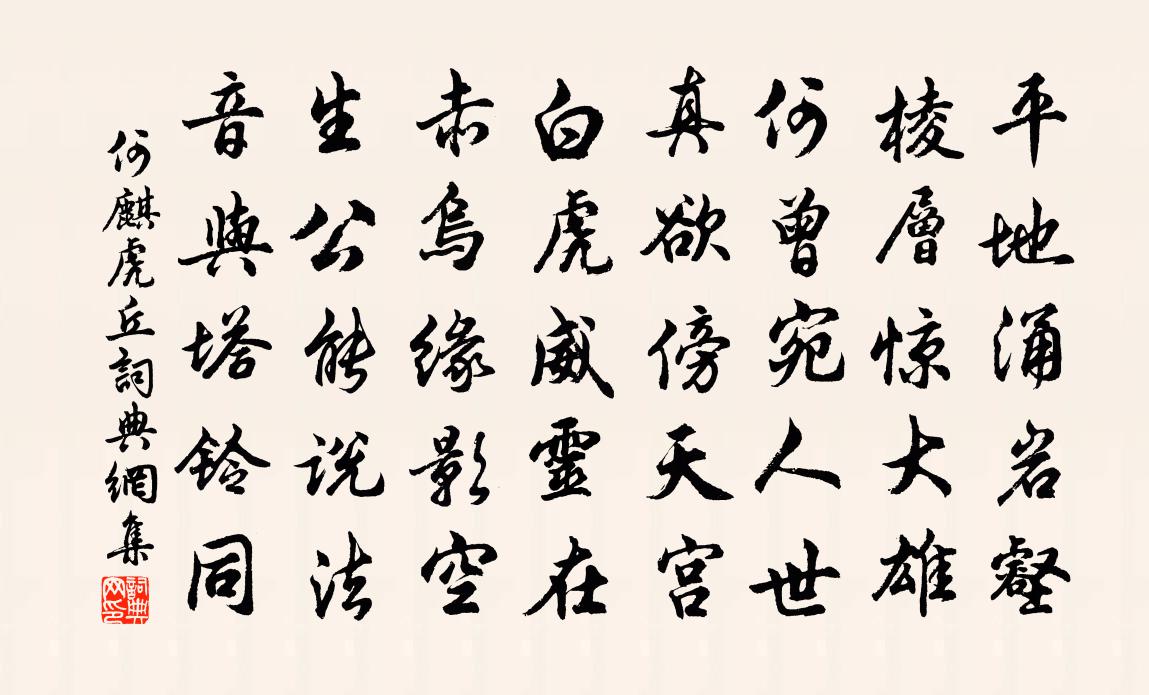 平地涌岩壑
棱層惊大雄
何曾宛人世
真欲傍天宫
白虎威靈在
赤烏緣影空
生公能说法
音與塔鈴同
何麒虎丘詞典網集
詞典网印